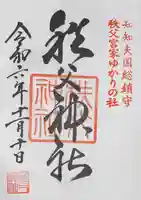 知知夫国総鎮守
秩父宮家ゆかりの社
秩父神社
令和六年十二月十日